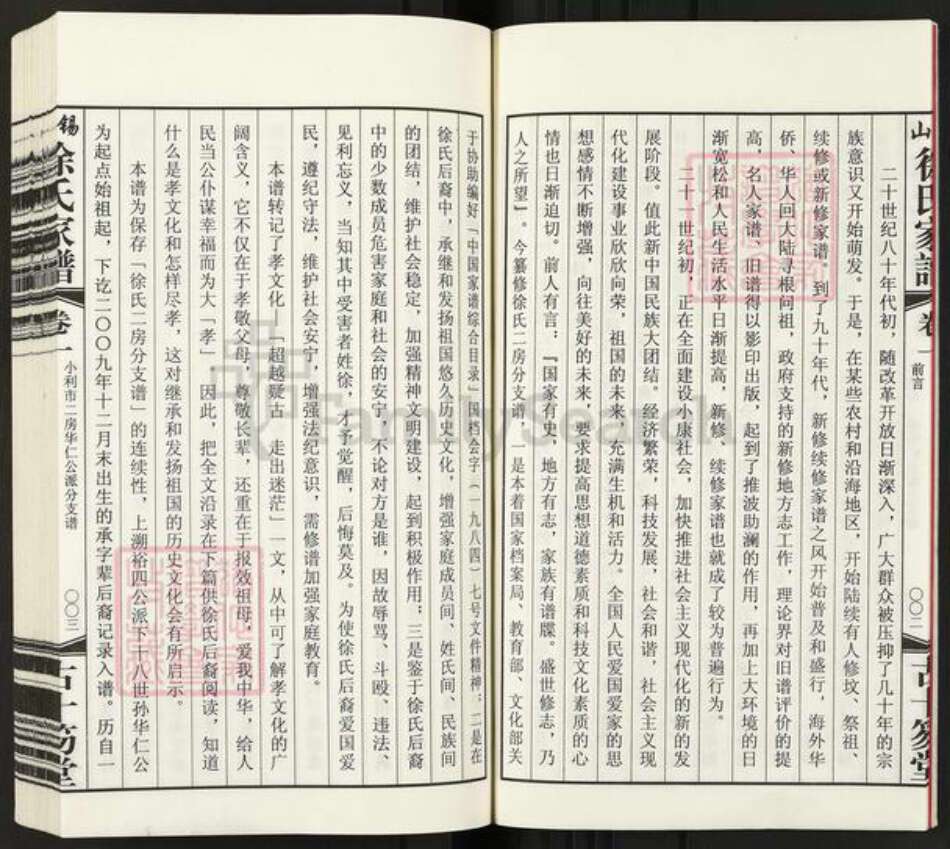 徐氏家譜
卷一
前言
〇〇二
二十世纪八十年代初，随改革开放日渐深入，广大群众被压抑了几十年的宗
族意识又开始萌发。于是，在某些农村和沿海地区，开始陆续有人修坟、祭祖、
续修或新修家谱，到了九十年代，新修续修家谱之风开始普及和盛行，海外华
侨、华人回大陆寻根问祖，政府支持的新修地方志工作，理论界对旧谱评价的提
高，名人家谱、旧谱得以影印出版，起到了推波助澜的作用，再加上大环境的日
渐宽松和人民生活水平日渐提高，新修、续修家谱也就成了较为普遍行为。
二十一世纪初，正在全面建设小康社会，加快推进社会主义现代化的新的发
展阶段。值此新中国民族大团结。经济繁荣，科技发展，社会和谐，社会主义现
代化建设事业欣欣向荣，祖国的未来，充满生机和活力。全国人民爱国爱家的思
想感情不断增强，向往美好的未来，要求提高思想道德素质和科技文化素质的心
情也日渐迫切。前人有言：『国家有史，地方有志，家族有谱牒。盛世修志，乃
人之所望』。今纂修徐氏二房分支谱，一是本着国家档案局、教育部、文化部关
于协助编好「中国家谱综合目录」国档会字（一九八四）七号文件精神；二是在
徐氏后裔中，承继和发扬祖国悠久历史文化，增强家庭成员间、姓氏间、民族间
的团结，维护社会稳定，加强精神文明建设，起到积极作用；三是鉴于徐氏后裔
中的少数成员危害家庭和社会的安宁，不论对方是谁，因故辱骂、斗殴、违法、
见利忘义，当知其中受害者姓徐，才予觉醒，后悔莫及。为使徐氏后裔爱国爱
民，遵纪守法，维护社会安宁，增强法纪意识，需修谱加强家庭教育。
本谱转记了孝文化—「超越疑古，走出迷茫」一文，从中可了解孝文化的广
阔含义，它不仅在于孝敬父母，尊敬长辈，还重在于报效祖母，爱我中华，给人
民当公仆谋幸福而为大「孝」，因此，把全文沿录在下篇供徐氏后裔阅读，知道
什么是孝文化和怎样尽孝，这对继承和发扬祖国的历史文化会有所启示。
本谱为保存「徐氏二房分支谱」的连续性，上溯裕四公派下十八世孙华仁公
为起点始祖起，下讫二〇〇九年十二月末出生的承字辈后裔记录入谱。历自一
錫
徐氏家譜
卷一
小利市二房华仁公派分支谱
〇〇三
FamilySearch